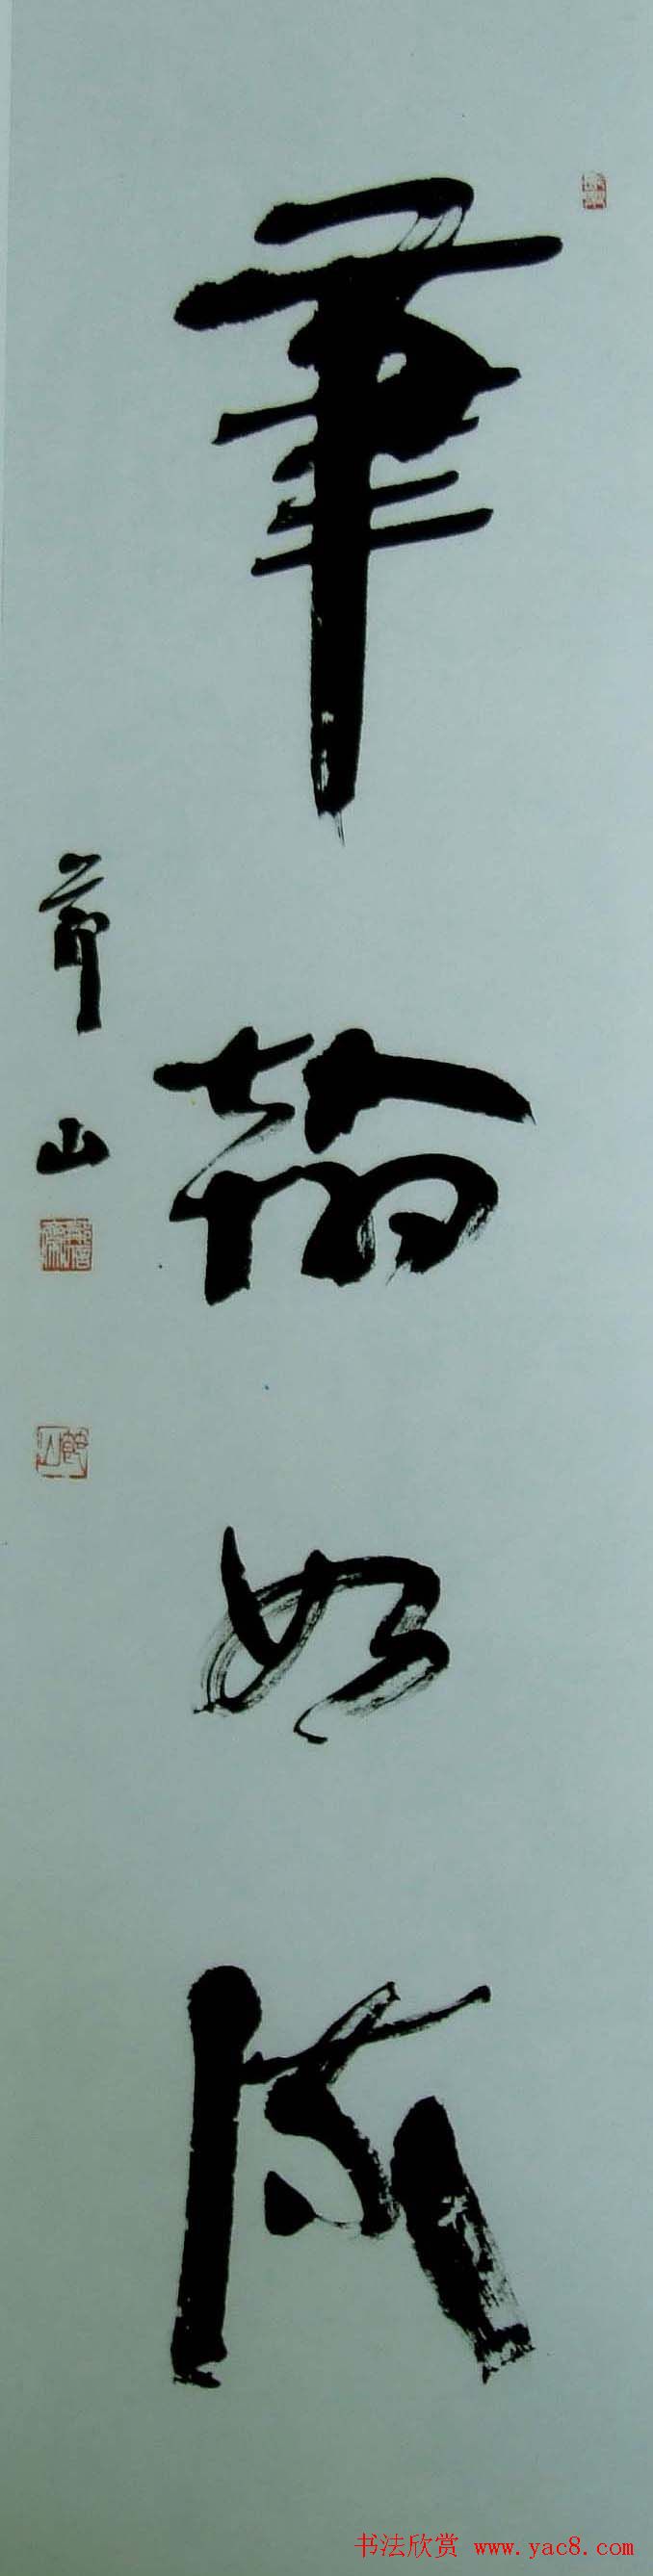 筆翰如流
節山
书法欣赏 www.yac8.com